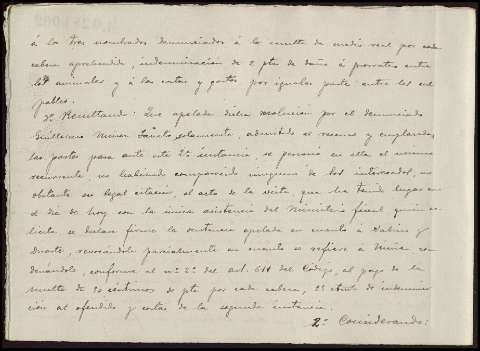 á los tres nombrados denunciados á la multa de medio real por cada
cabeza aprehendida, indemnizacion de 2 pts de daño á prorrateo entre
los animales y á las costas y gastos por iguales partes entre los cul
pables.
2º Resultando: Que apelada dicha resolucion por el denunciado
Guillermo solamente, admitido el recurso y emplazadas
las partes para ante esta 2ª instancia, se personó en ella el mismo
recurrente, no habiendo comparecido ninguno de los interesados, no
obstante su legal citacion, al acto de la vista que ha tenido lugar en
el dia de hoy con la única asistencia del Ministerio fiscal quien so
licita se declare firme la sentencia apelada en cuanto á Sabino y
Duarte, revocándola parcialmente en cuanto se refiere á con
denándole, conforme al nº 2º del art. 611 del Código, al pago de la
multa de céntimos de pta por cada cabeza, de indemniza
cion al ofendido y costas de la segunda instancia.
2º Considerando: